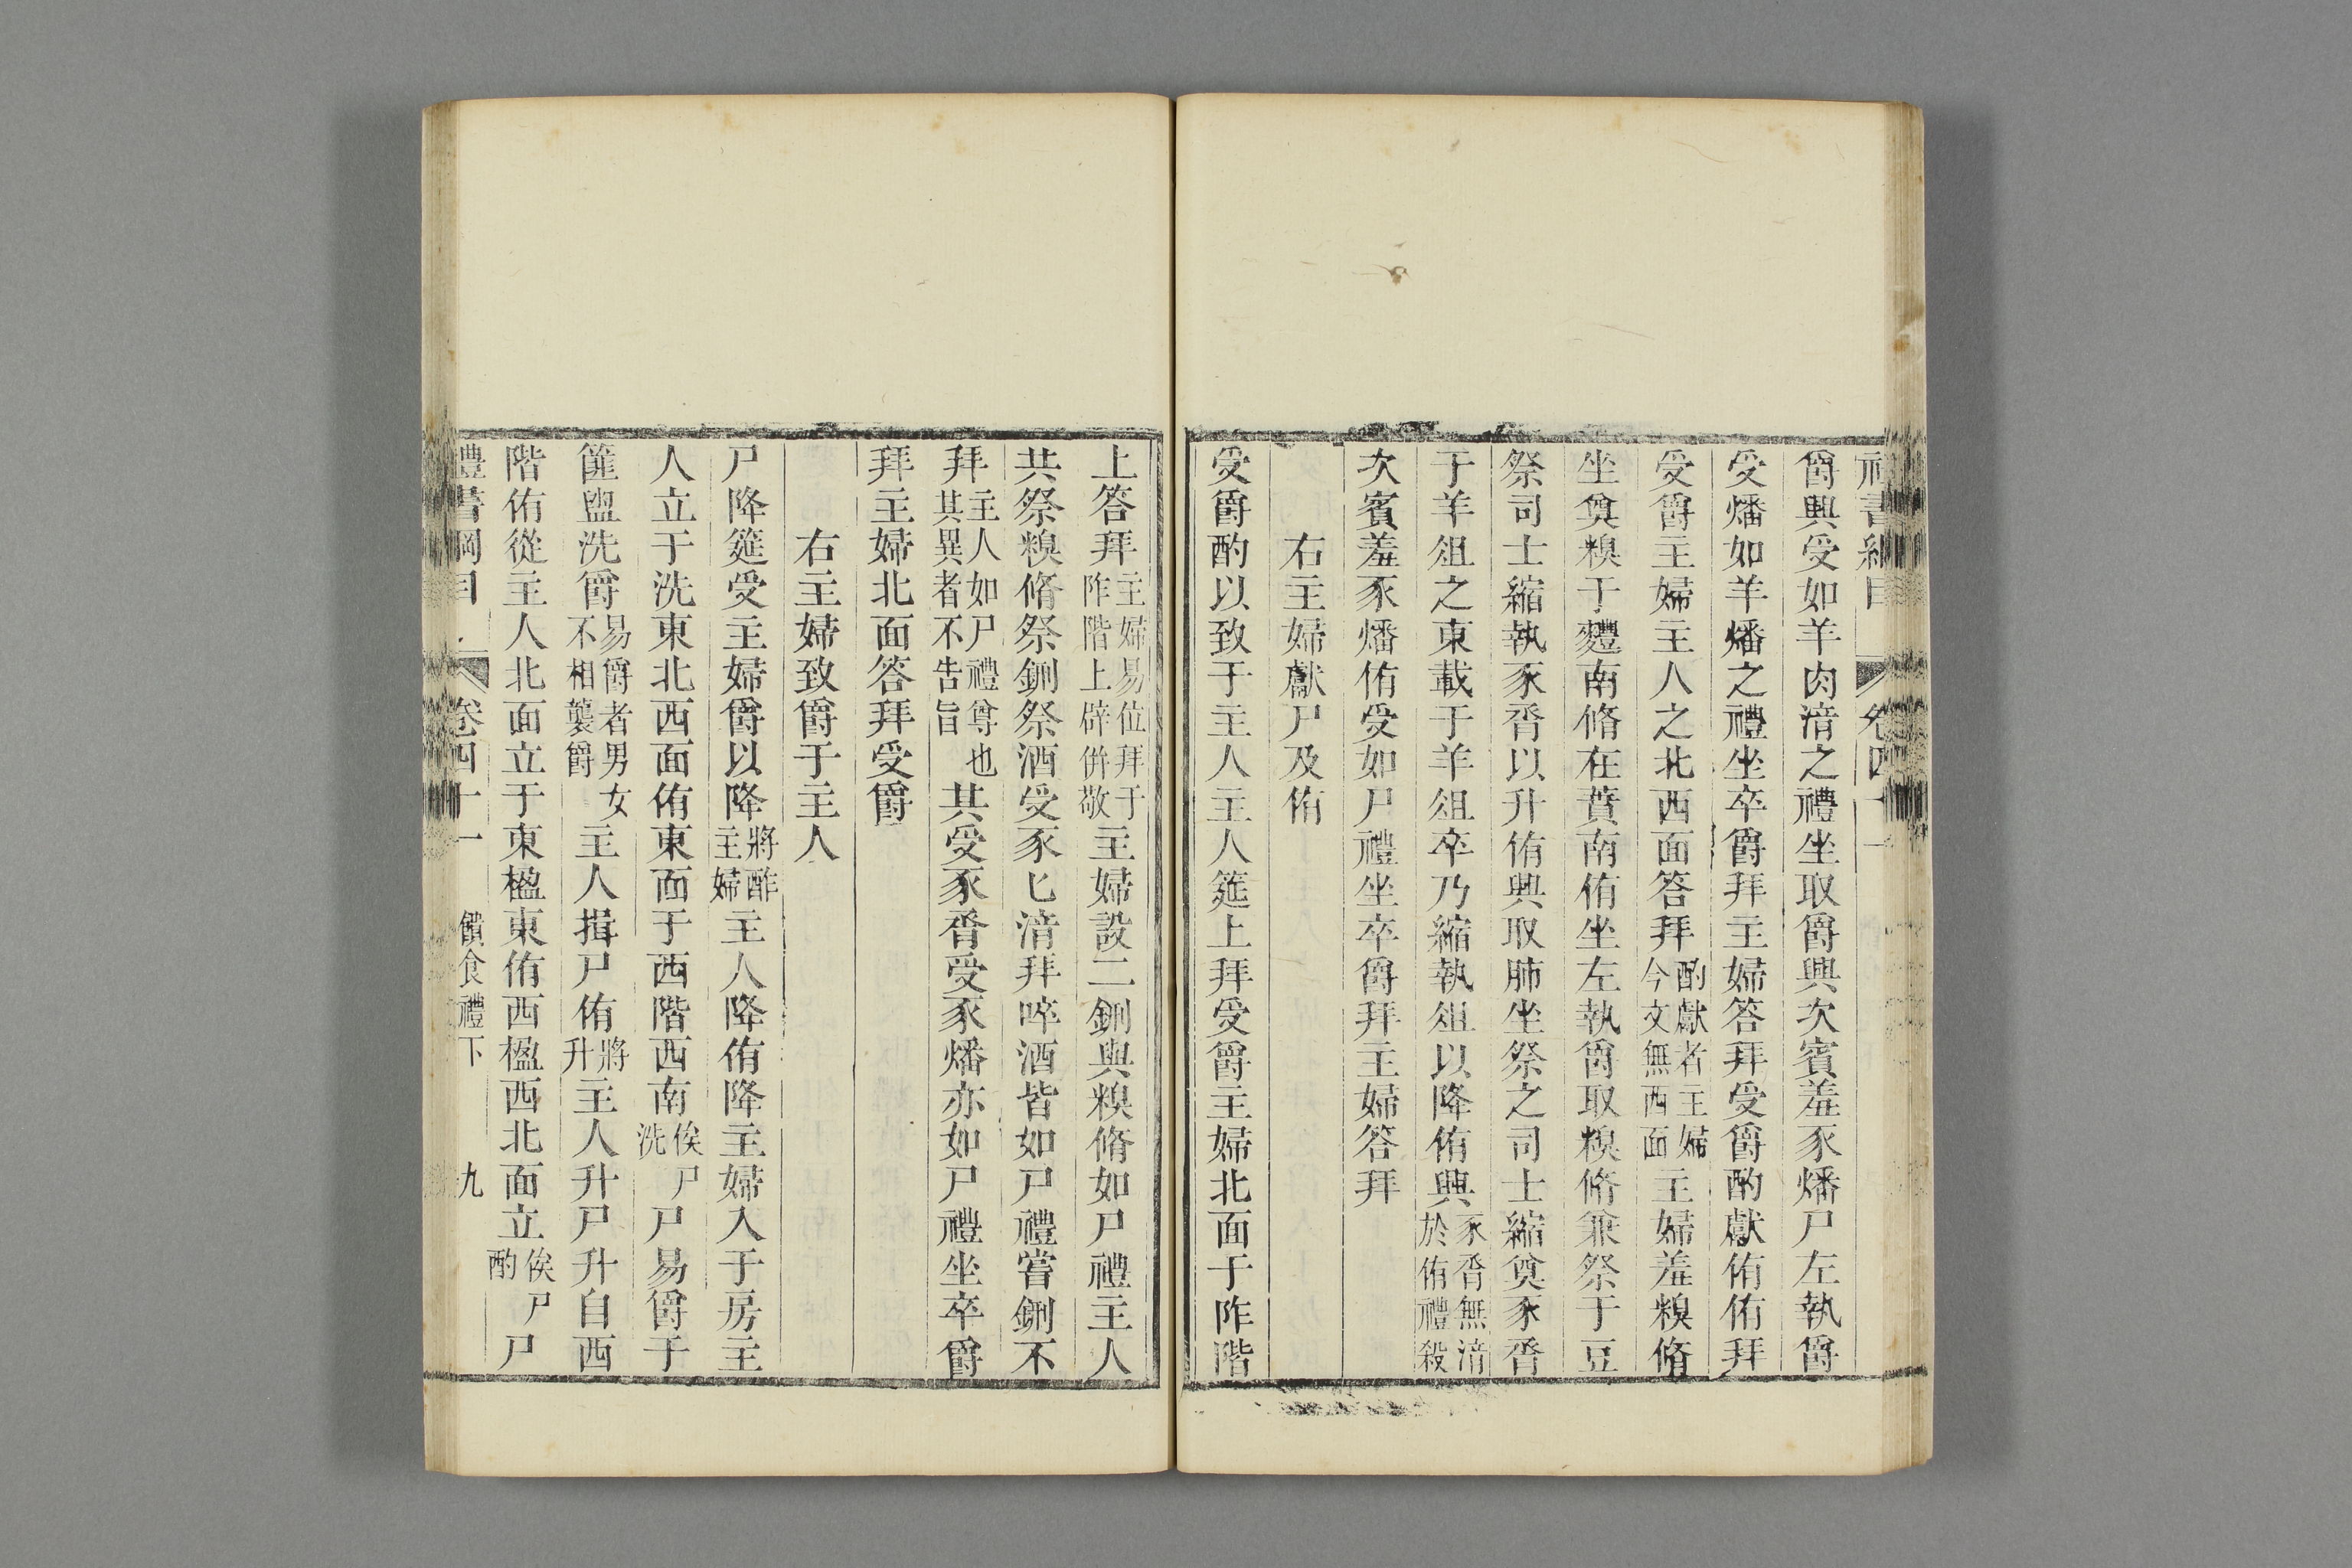 爵興受如羊肉湇之禮坐取爵興次賓羞豕燔尸左執爵
受燔如羊燔之禮坐卒爵拜主婦答拜受爵酌獻侑侑拜
受爵主婦主人之北西面答拜酌獻者主婦今文無西面主婦羞糗脩
坐奠糗于麷南脩在蕡南侑坐左執爵取糗脩兼祭于豆
祭司士縮執豕脀以升侑興取肺坐祭之司士縮奠豕脀
于羊俎之東載于羊俎卒乃縮執俎以降侑興豕脀無湇於侑禮殺
次賓羞豕燔侑受如尸禮坐卒爵拜主婦答拜
右主婦獻尸及侑
受爵酌以致于主人主人筵上拜受爵主婦北面于阼階
上答拜主婦易位拜于阼階上辟併敬主婦設二鉶與糗脩如尸禮主人
共祭糗脩祭鉶祭酒受豕匕湇拜啐酒皆如尸禮嘗鉶不
拜主人如尸禮尊也其異者不告旨其受豕脀受豕燔亦如尸禮坐卒爵
拜主婦北面答拜受爵
右主婦致爵于主人
尸降筵受主婦爵以降將酢主婦主人降侑降主婦入于房主
人立于洗東北西面侑東面于西階西南俟尸洗尸易爵于
篚盥洗爵易爵者男女不相襲爵主人揖尸侑將升主人升尸升自西
階侑從主人北面立于東楹東侑西楹西北面立俟尸酌尸
禮書綱目 卷四十一 饋食禮下 九